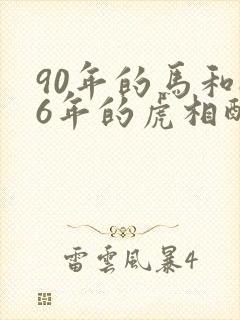 90年的馬和
6年的虎相
雷雲風暴4